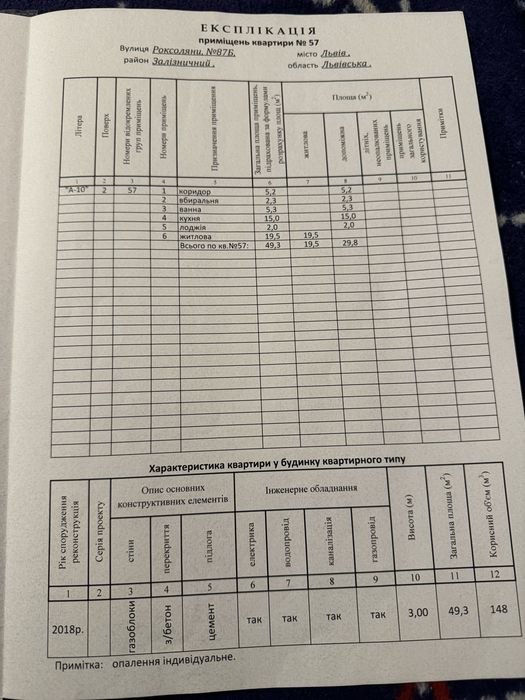 ЕКСПЛІКАЦІЯ
приміщень квартири № 57
Вулиця Роксоляни, №87Б, місто Львів,
район Залізничний, область Львівська.
Літера Поверх Номери відокремлених груп приміщень Номери приміщень Призначення приміщення Загальна площа приміщень, підрахована за формулами розрахунку площ (м²) Площа (м²) Примітки
житлова допоміжна літніх, неопалюваних приміщень приміщень загального користування
1 2 3 4 5 6 7 8 9 10 11
"А-10" 2 57 1 коридор 5,2 5,2
2 вбиральня 2,3 2,3
3 ванна 5,3 5,3
4 кухня 15,0 15,0
5 лоджія 2,0 2,0
6 житлова 19,5 19,5
Всього по кв.№57: 49,3 19,5 29,8
Характеристика квартири у будинку квартирного типу
Рік спорудження реконструкція Серія проекту Опис основних конструктивних елементів Інженерне обладнання Висота (м) Загальна площа (м²) Корисний об'єм (м³)
стіни перекриття підлога електрика водопровід каналізація газопровід
1 2 3 4 5 6 7 8 9 10 11 12
2018р. газоблоки з/бетон цемент так так так так 3,00 49,3 148
Примітка: опалення індивідуальне.